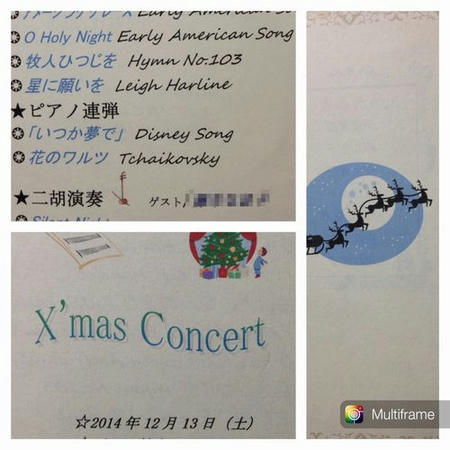 アメージンググレース Early American Song
O Holy Night Early American Song
牧人ひつじを Hymn No.103
星に願いを Leigh Harline
★ピアノ連弾
「いつか夢で」 Disney Song
花のワルツ Tchaikovsky
★二胡演奏 ゲスト/
Silent Night
X'mas Concert
☆2014年12月13日（土）
Multiframe